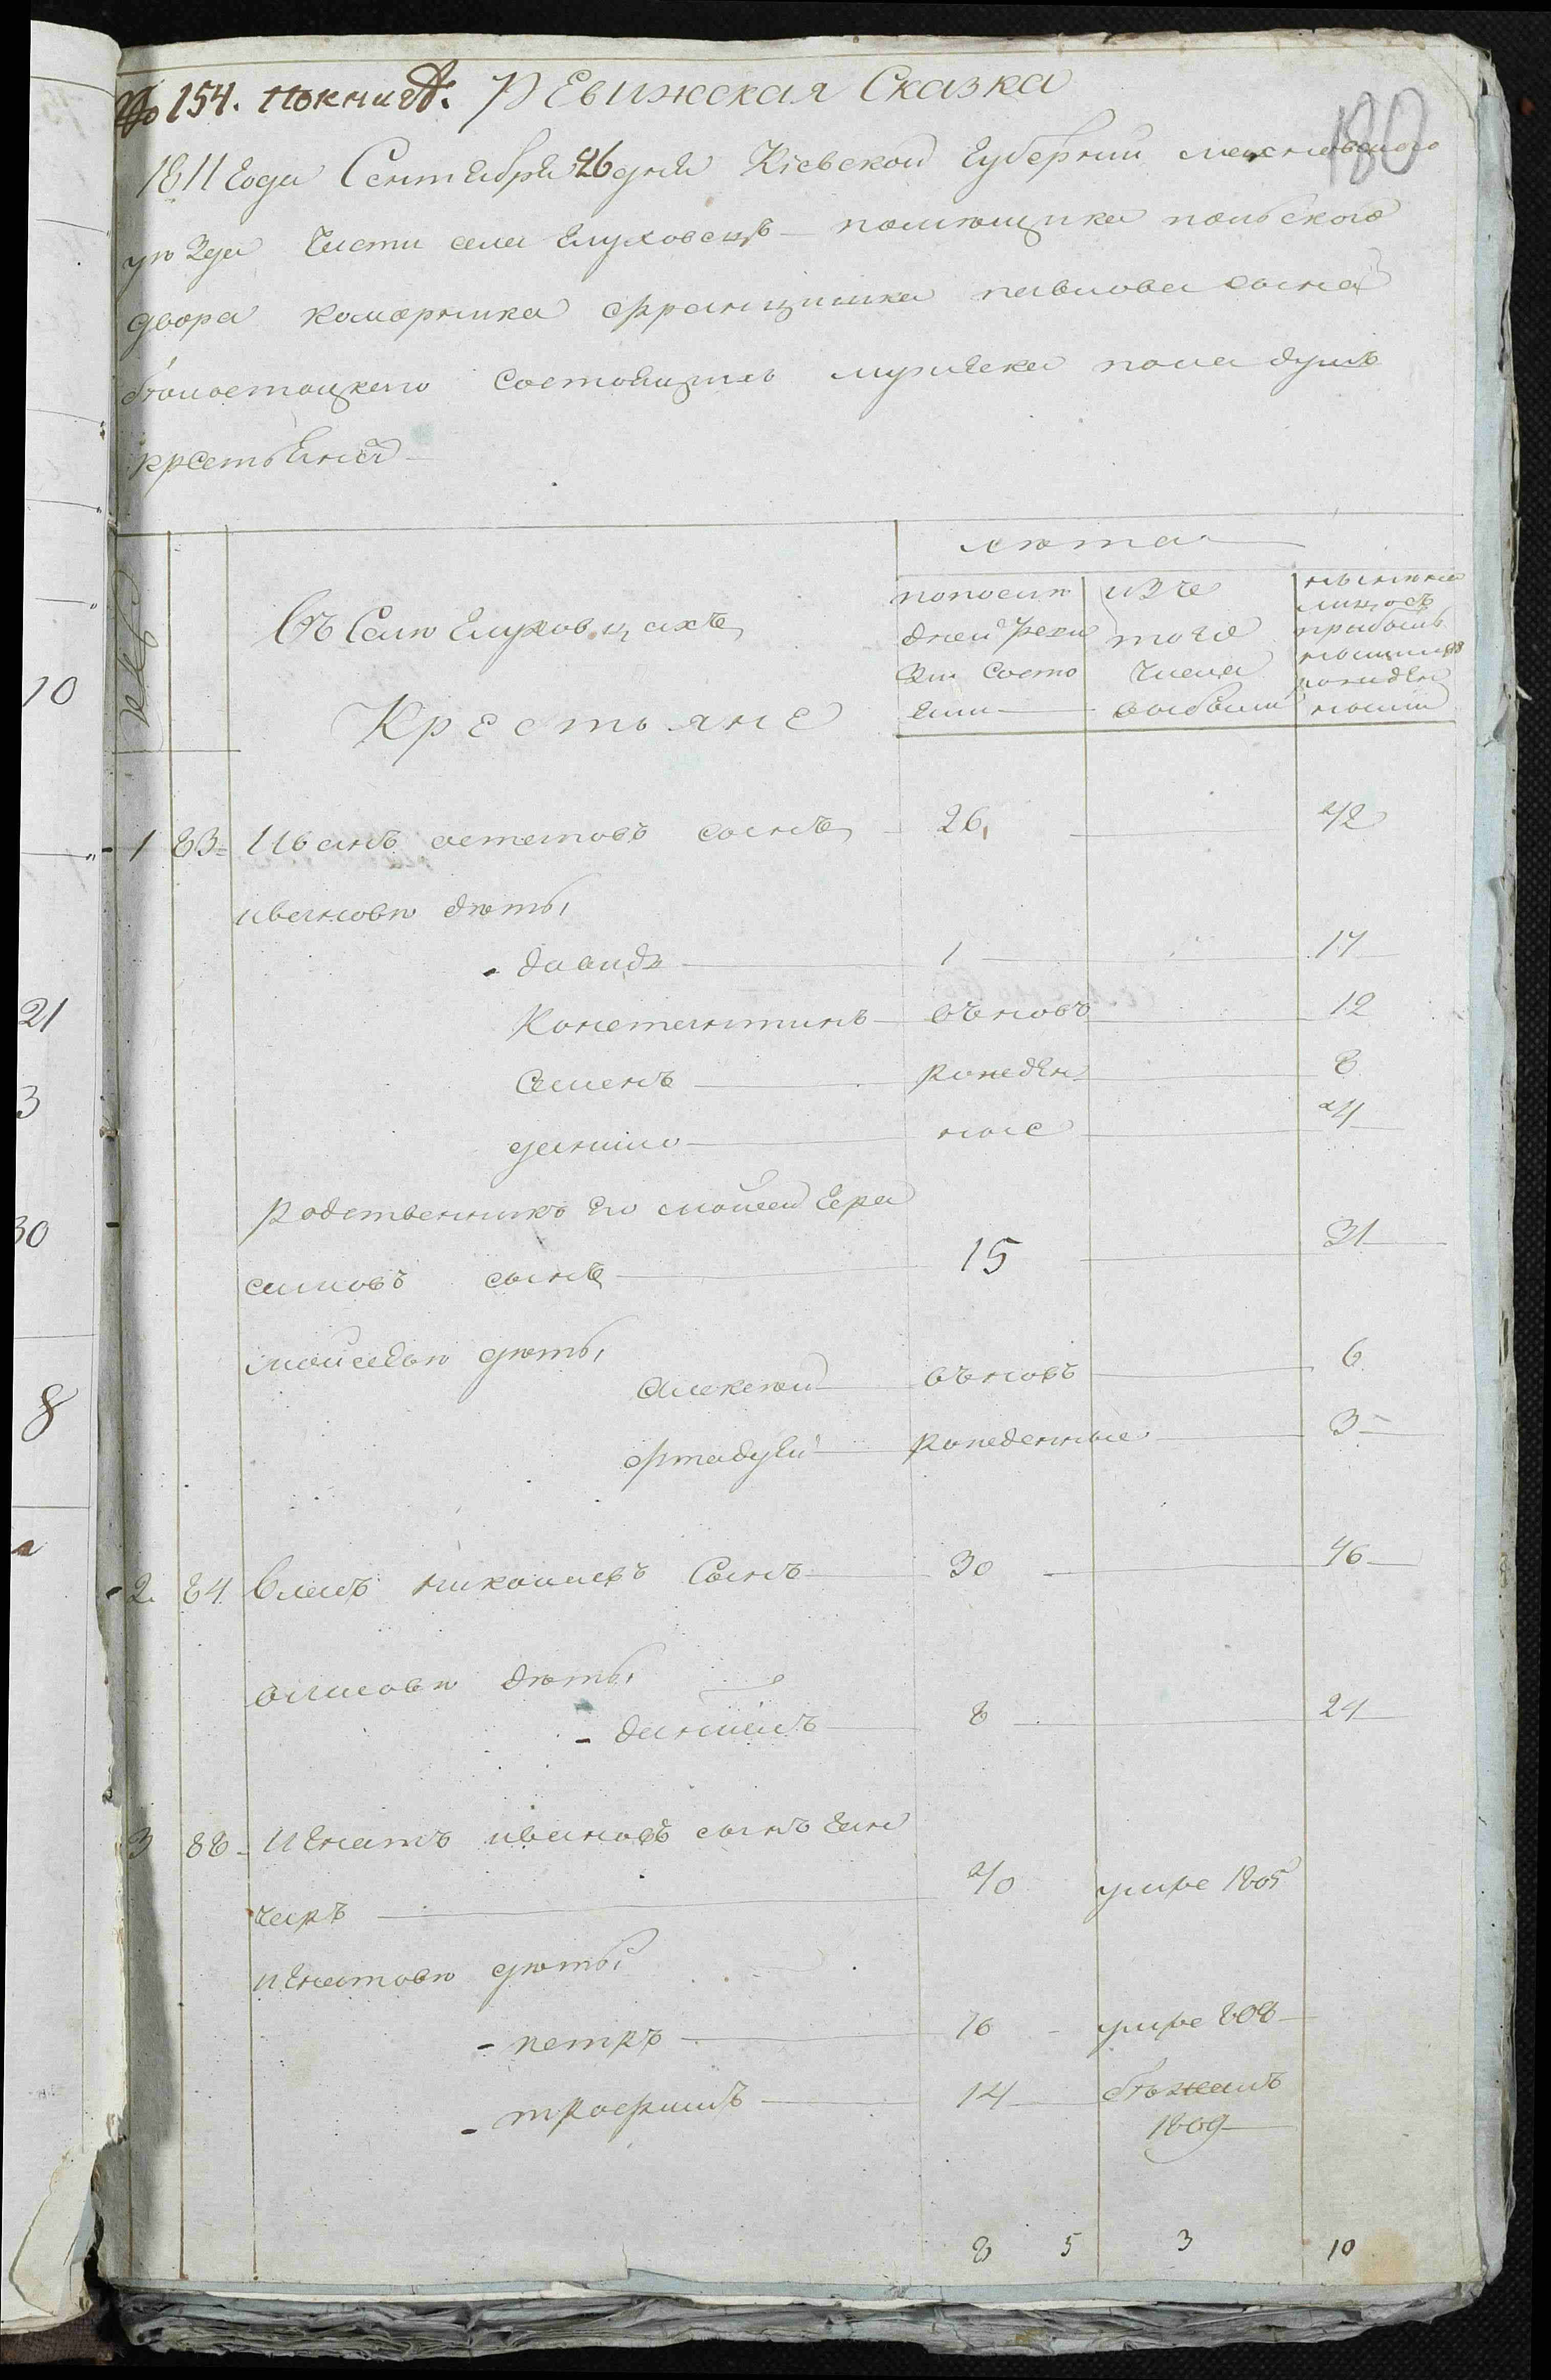 № 154. по книгѣ. РЕвижская Сказка
180
1811 Года Сентября 26 дня Кіевской Губерніи махновского
уѣзда Части села Глуховецъ помѣщика польского
двора коморника Францишка павлова сына
бѣлостоцкаго Состоящихъ мужеска пола душъ
крестьянъ
лѣта
Въ Селѣ Глуховцахъ
Крестьяне
по посли
дней Реви
зіи Состо
яли
изъ
того
числа
выбыли
нынѣ на
лицо съ
прибылы
ми и
рожден
ными
1 83 Иванъ остаповъ сынъ 26 42
ивановы дѣты
давидъ 1 17
Константинъ въновь 12
Семенъ рожден 8
данило ные 4
Родственникъ Его мойсей Гера
симовъ сынъ 15 31
мойсевы дѣты
Алексѣй въновь 6
Фтадѣй рожденные 3
2 84 Власъ николаевъ Сынъ 30 46
власовы дѣты
даніилъ 8 24
3 88 Игнатъ ивановъ сынъ Ган
чаръ 40 умре 1805
Игнатовы дѣты
петръ 16 умре 808
трофимъ 14 бѣжалъ
1809
8 5 3 10
10
21
3
30
8